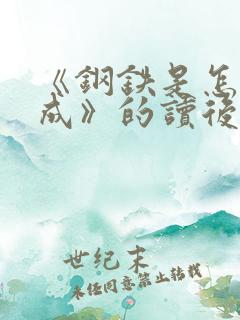 《鋼鉄是怎
成》的讀後
世纪末
未经同意禁止转载